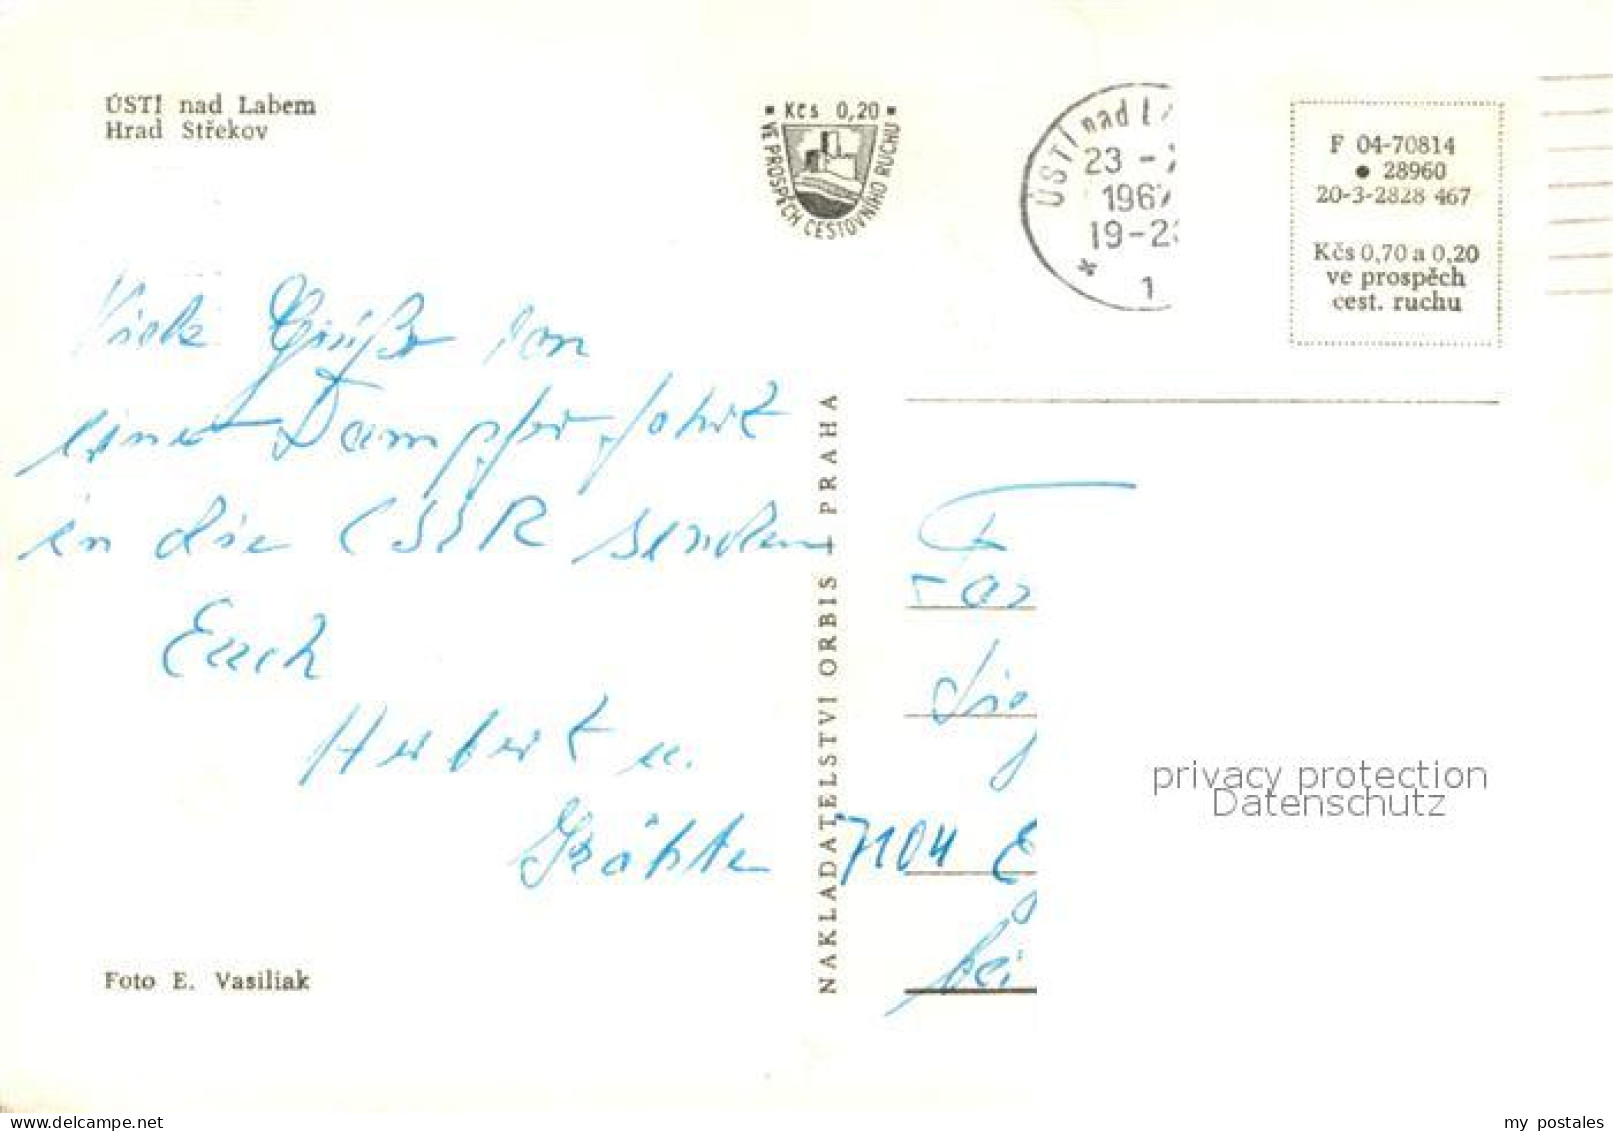 ÚSTÍ nad Labem
Hrad Střekov
Kčs 0,20
VE PROSPĚCH CESTOVNÍHO RUCHU
ÚSTÍ nad L
23 -
196
19-2
1
F 04-70814
28960
20-3-2828 467
Kčs 0,70 a 0,20
ve prospěch
cest. ruchu
Viele Grüße von
einer Dampferfahrt
in die CSSR senden
Euch
Herbert u.
NAKLADATELSTVÍ ORBIS - PRAHA
7104
bei
Foto E. Vasiliak
privacy protection
Datenschutz
www.delcampe.net
my_postales